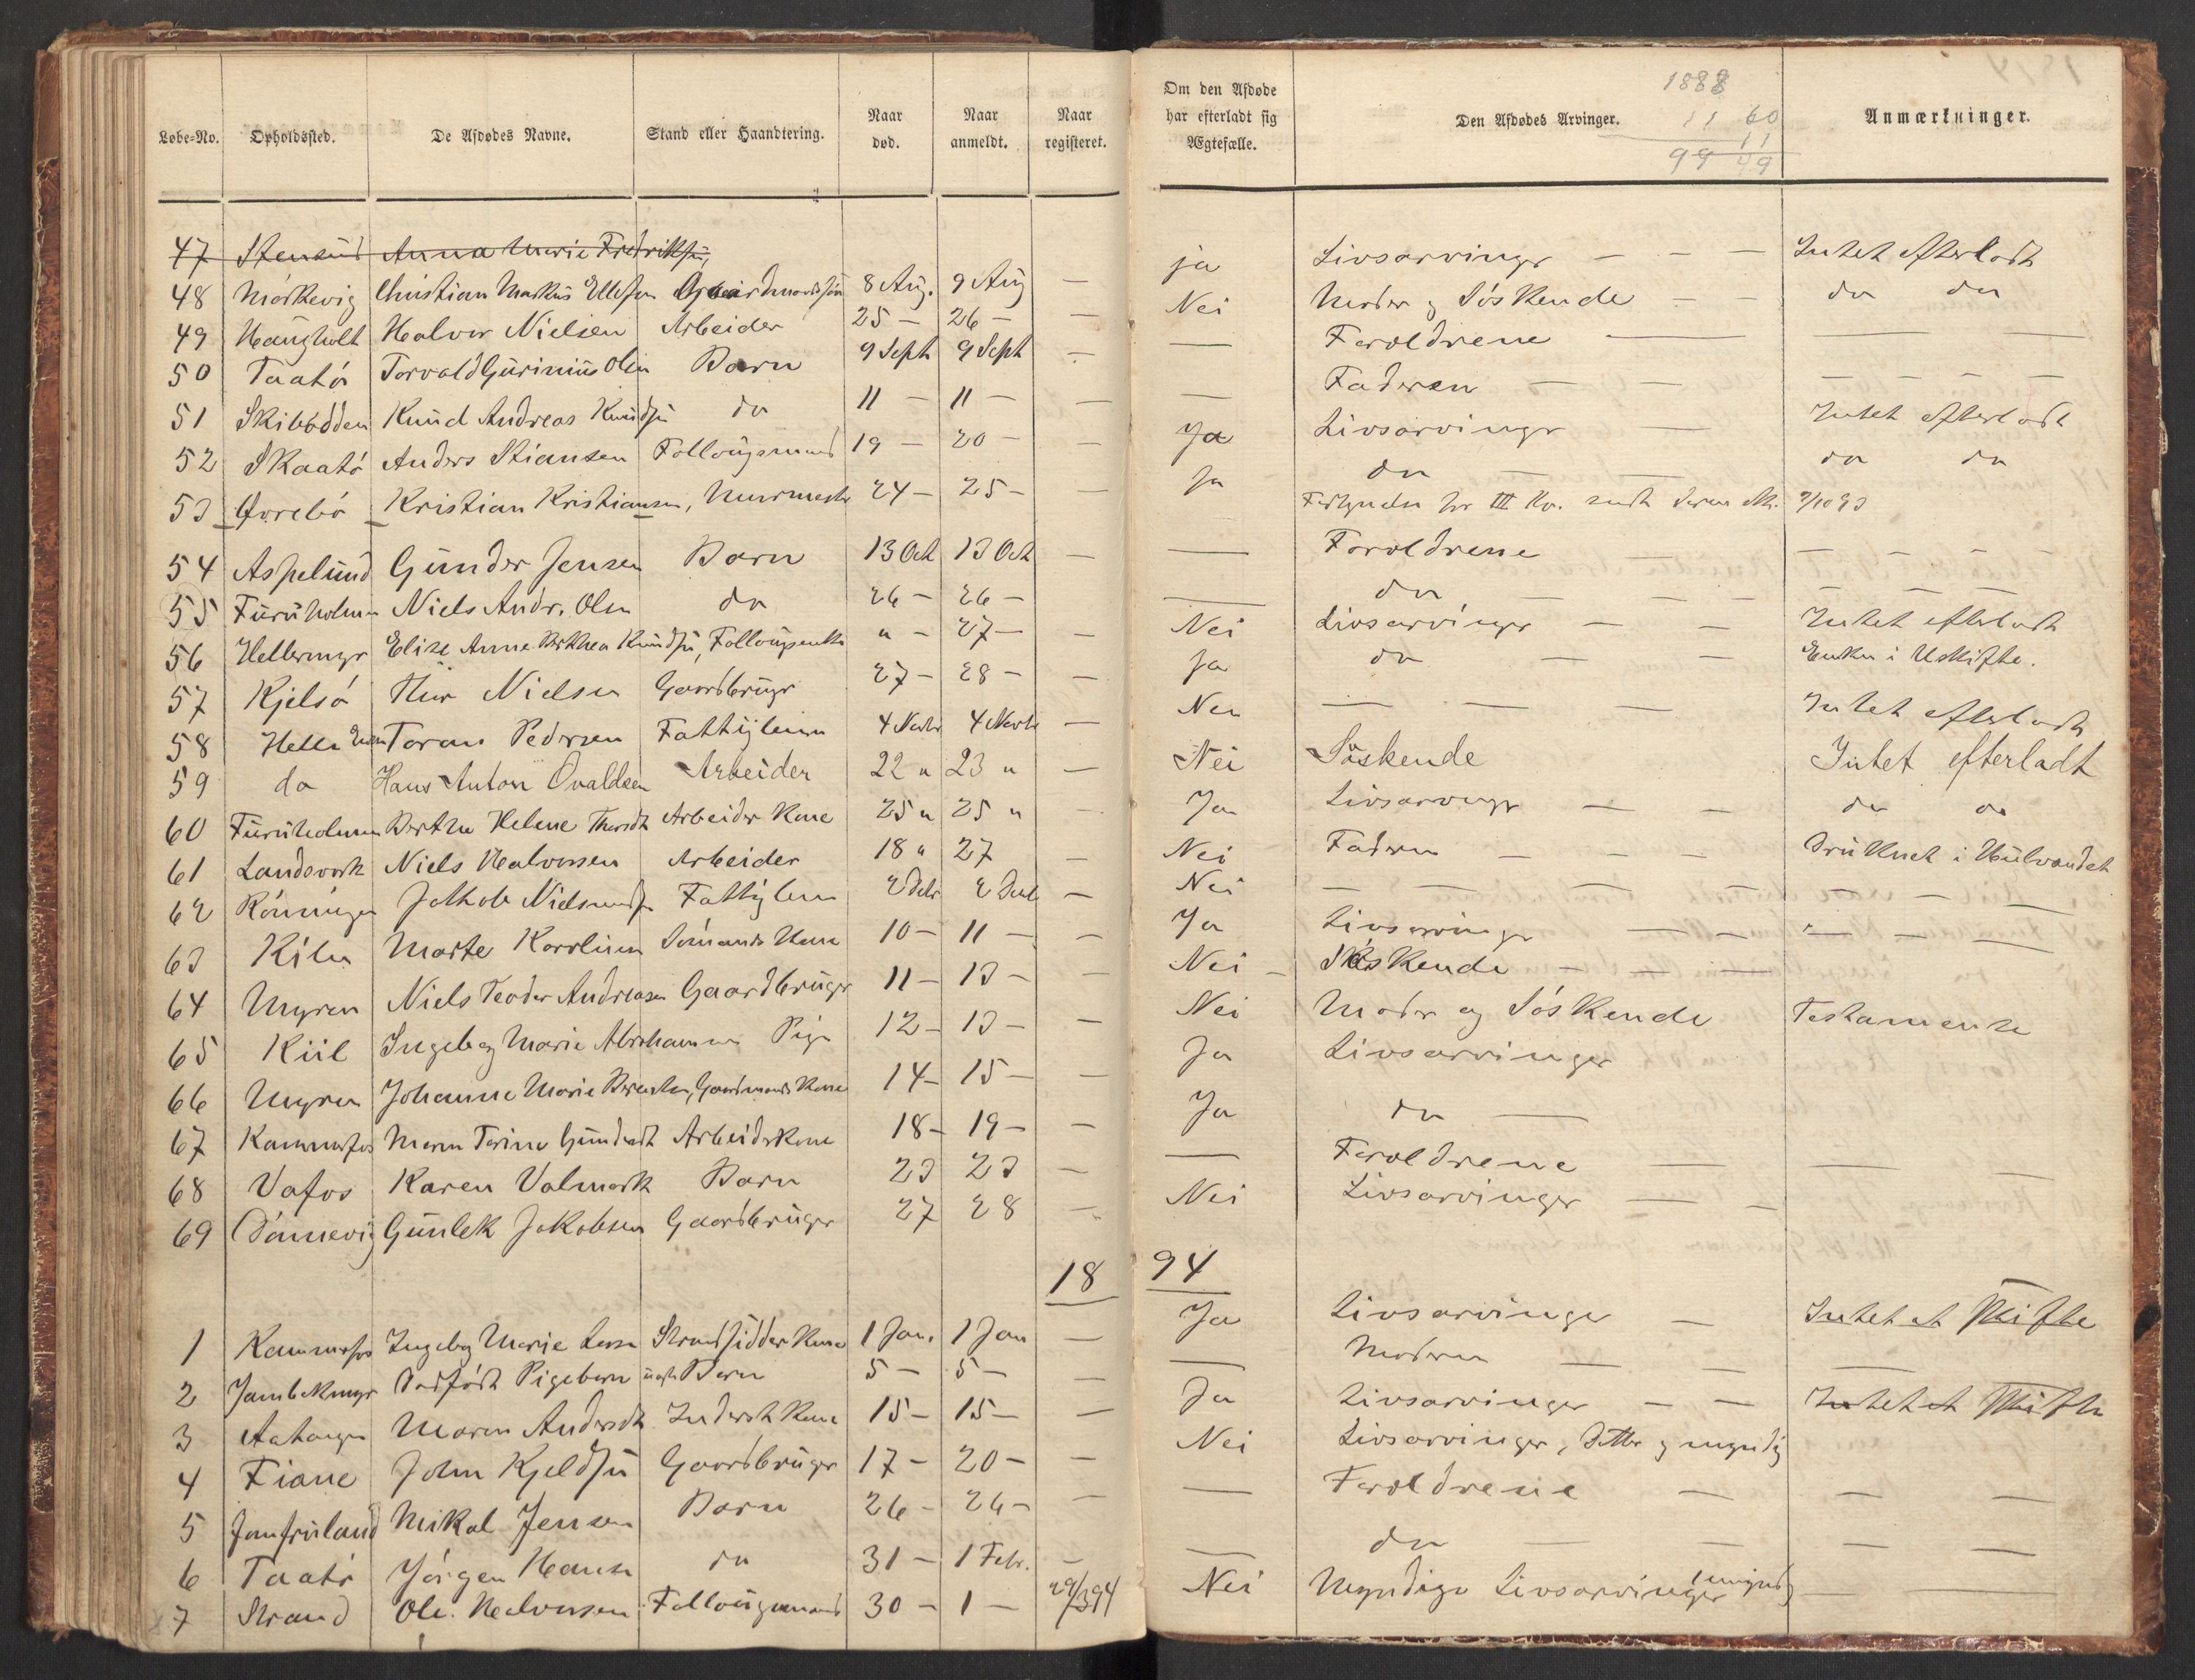 Løbe-No. Opholdssted. De Afdødes Navne. Stand eller Haandtering. Naar død. Naar anmeldt. Naar registeret. Om den Afdøde har efterladt sig Ægtefælle. Den Afdødes Arvinger. Anmærkninger.
1888
11 60
11
99 49
47 Stensund Anna Marie Fredriksen,
48 Mørkevig Christian Markus Ellefsen Gaardmandssøn 8 Aug. 9 Aug — ja Livsarvinger — — — Intet efterladt
49 Haugholt Halvor Nielsen Arbeider 25 — 26 — — Nei Moder og Søskende — — do do
50 Taatø Torvald Gurinius Olsen Barn 9 Sept 9 Sept — — Forældrene — — —
51 Skibodden Knud Andreas Knudsen do 11 — 11 — — — Faderen — — — — — —
52 Skaatø Anders Stiansen Follougsmand 19 — 20 — — Ja Livsarvinger — Intet efterladt
53 Ørebø Kristian Kristiansen, Murmester 24 — 25 — — Ja do — — do do
for III Kv. sendt 9/10 93
54 Aspelund Gunder Jensen Barn 13 Oct 13 Oct — — Forældrene — — — — —
55 Furuholmen Niels Andr. Olsen do 26 — 26 — — do — — — — —
56 Hellermyr Elise Anne Berthea Knudsen, Follougsenke " — 27 — — Nei Livsarvinger — — Intet efterladt
57 Kjelsø Thor Nielsen Gaardbruger 27 — 28 — — Ja do — — Enken i Uskifte.
58 Helle Toran Pedersen Fattiglem 4 Novbr 4 Novbr — Nei — — — Intet efterladt
59 do Hans Anton Ovaldsen Arbeider 22 " 23 " — Nei Søskende Intet efterladt
60 Furuholmen Berthe Helene Thorsdt Arbeider Kone 25 " 25 " — Ja Livsarvinger — — do do
61 Landsverk Niels Halvorsen Arbeider 18 " 27 — Nei Faderen — — — Druknet i Hulvandet
62 Rønningen Jakob Nielsen Fattiglem 2 Debr 2 Decb — Nei — — — — — —
63 Kilen Marte Karoline Sømands Kone 10 — 11 — — Ja Livsarvinger — — — — — —
64 Myren Niels Teodor Andreasen Gaardbruger 11 — 13 — — Nei — Søskende — — —
65 Kiil Ingeborg Marie Abrahamsen Pige 12 — 13 — — Nei Moder og Søskende Testamente
66 Myren Johanne Marie Berentsen, Gaardmands Kone 14 — 15 — — Ja Livsarvinger
67 Kammerfos Maren Torine Gundersdt Arbeiderkone 18 — 19 — — Ja do —
68 Vafos Karen Valmark Barn 23 23 — — Forældrene — — —
69 Dønnevig Gunlek Jakobsen Gaardbruger 27 28 — Nei Livsarvinger — —
18 94
1 Kammerfos Ingeborg Marie Larsen Strandsidder Kone 1 Jan. 1 Jan — Ja Livsarvinger — Intet at Skifte
2 Jambakmyr Dødfødt Pigebarn uægte Barn 5 — 5 — — — Moderen — — —
3 Maren Andersdt Inderst Kone 15 — 15 — — Ja Livsarvinger — — Intet at Skifte
4 Fiane John Kjeldsen Gaardbruger 17 — 20 — — Nei Livsarvinger, Datter og myndig
5 Jomfruland Mikal Jensen Barn 26 — 26 — — — Forældrene — — —
6 Taatø Jørgen Hansen do 31 — 1 Febr. — — do — — — —
7 Strand Ole Halvorsen Follougsmand 30 — 1 — 29/3 94 Nei Myndige Livsarvinger —